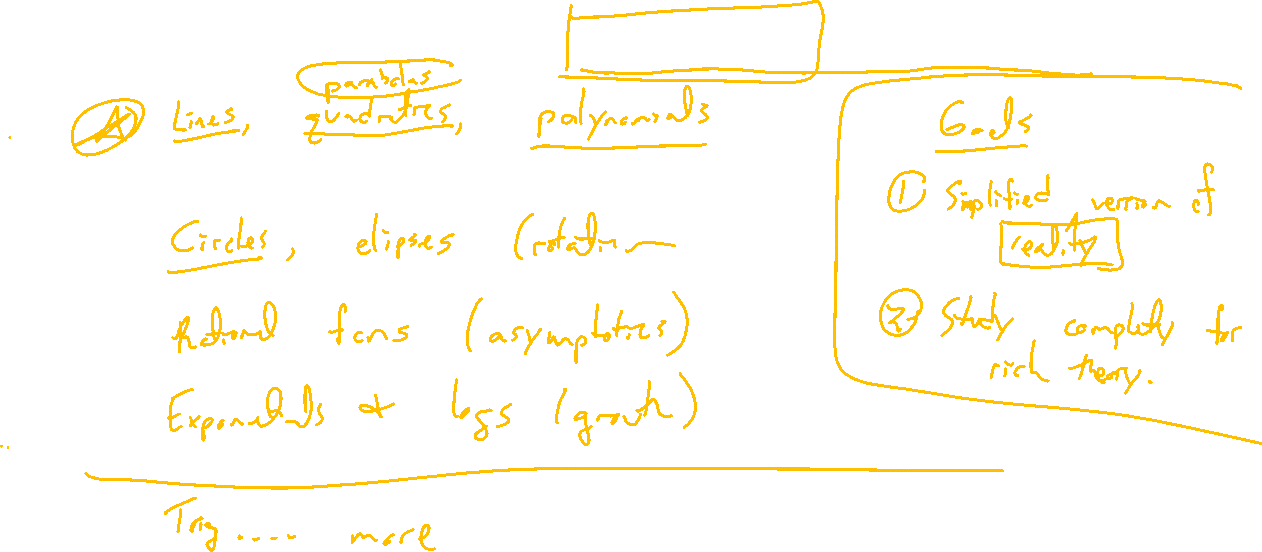 parabolas
Ⓐ Lines, quadratics, polynomials
Circles, elipses (rotation
Rational fcns (asymptotics)
Exponentials & logs (growth)
Trig .... more
Goals
① Simplified version of
reality
② Study completely for
rich theory.